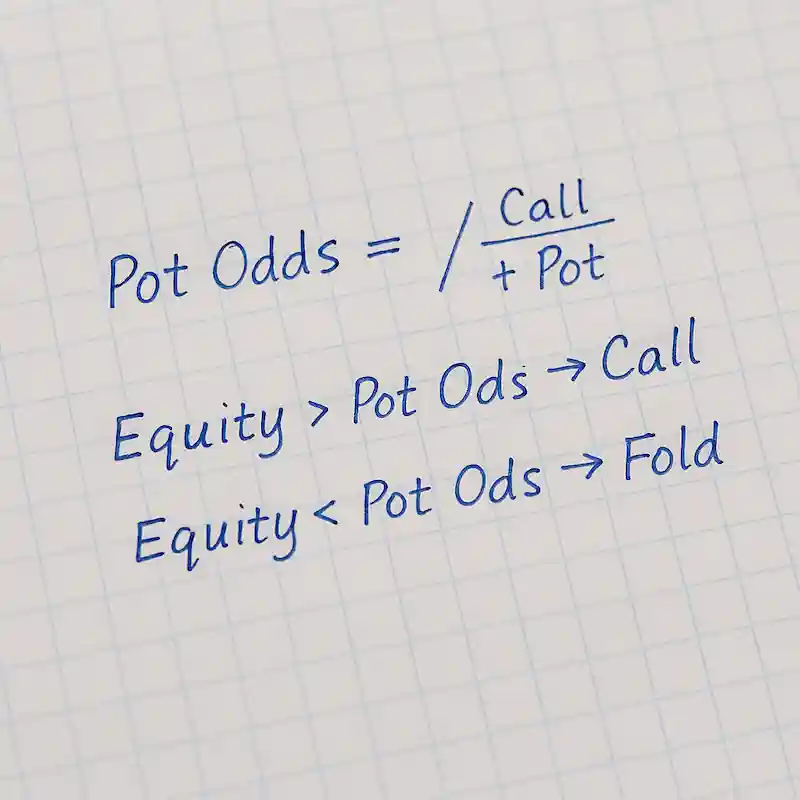 Pot Odds = / Call
+ Pot
Equity > Pot Ods → Call
Equity < Pot Ods → Fold